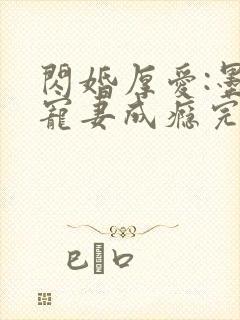 閃婚厚愛:墨
寵妻成癮完